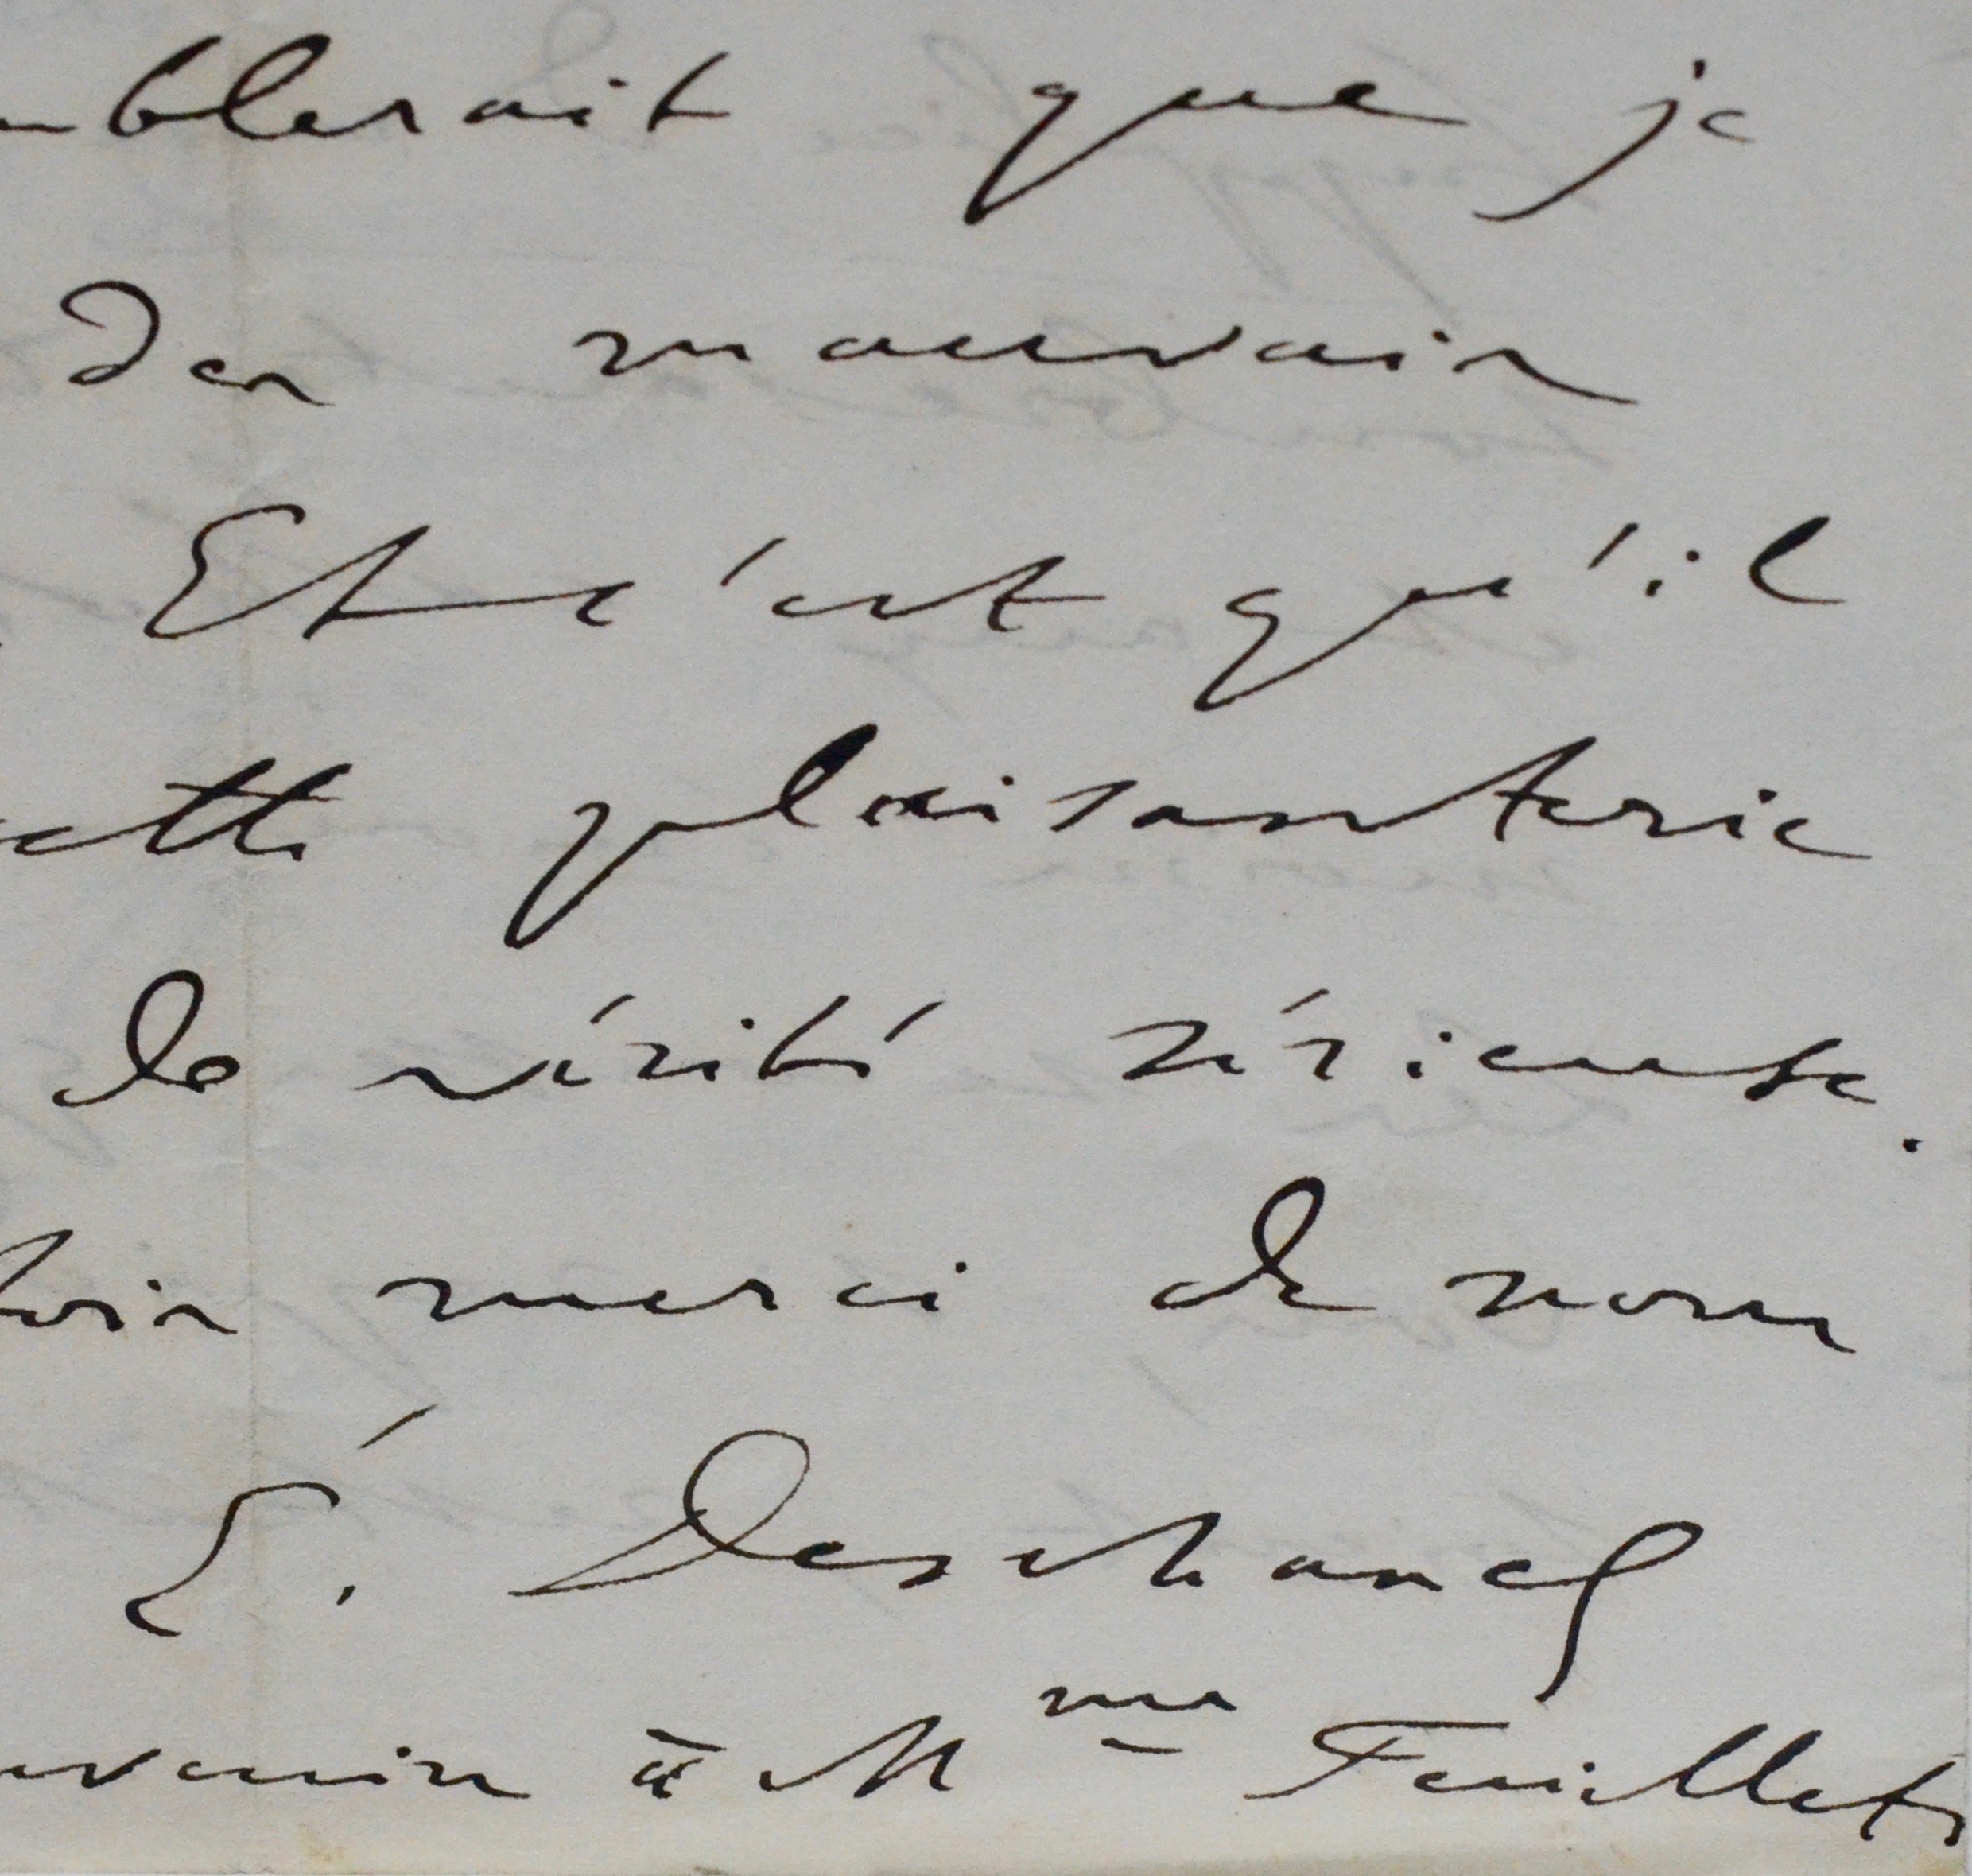 mblerait que je
des mauvais
Et c'est qu'il
cette plaisanterie
de vérité sérieuse.
fois merci de nous
É. Deschanel
uvenirs à Mme Feuillet,